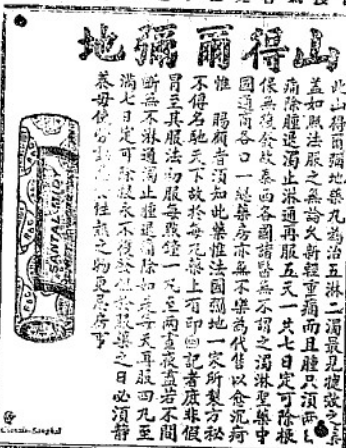 山得爾彌地
此山得爾彌地藥丸為治五淋二濁最見捷效之
盖如照法服之無論久新輕重痛而且腫只須兩
痛除腫退濁止淋通再服五天一共七日定可除根
保無復發故泰西各國諸醫無不謂之濁淋聖藥中
國通商各口一總藥房亦無不樂為代售以愈沉疴
惟 賜顧者須知此藥惟法國彌地一家所製方秘
不得名馳天下故於每瓦藥上有印記者庶非假
冒至其服法初服每鐘一瓦至兩晝夜盖若不間
斷無不淋通濁止腫退痛除如是每天再服四瓦至
滿七日定可除根永不復發於服藥之日必須靜
養毋使勞動性之物更忌房事
SANTAL MIDY